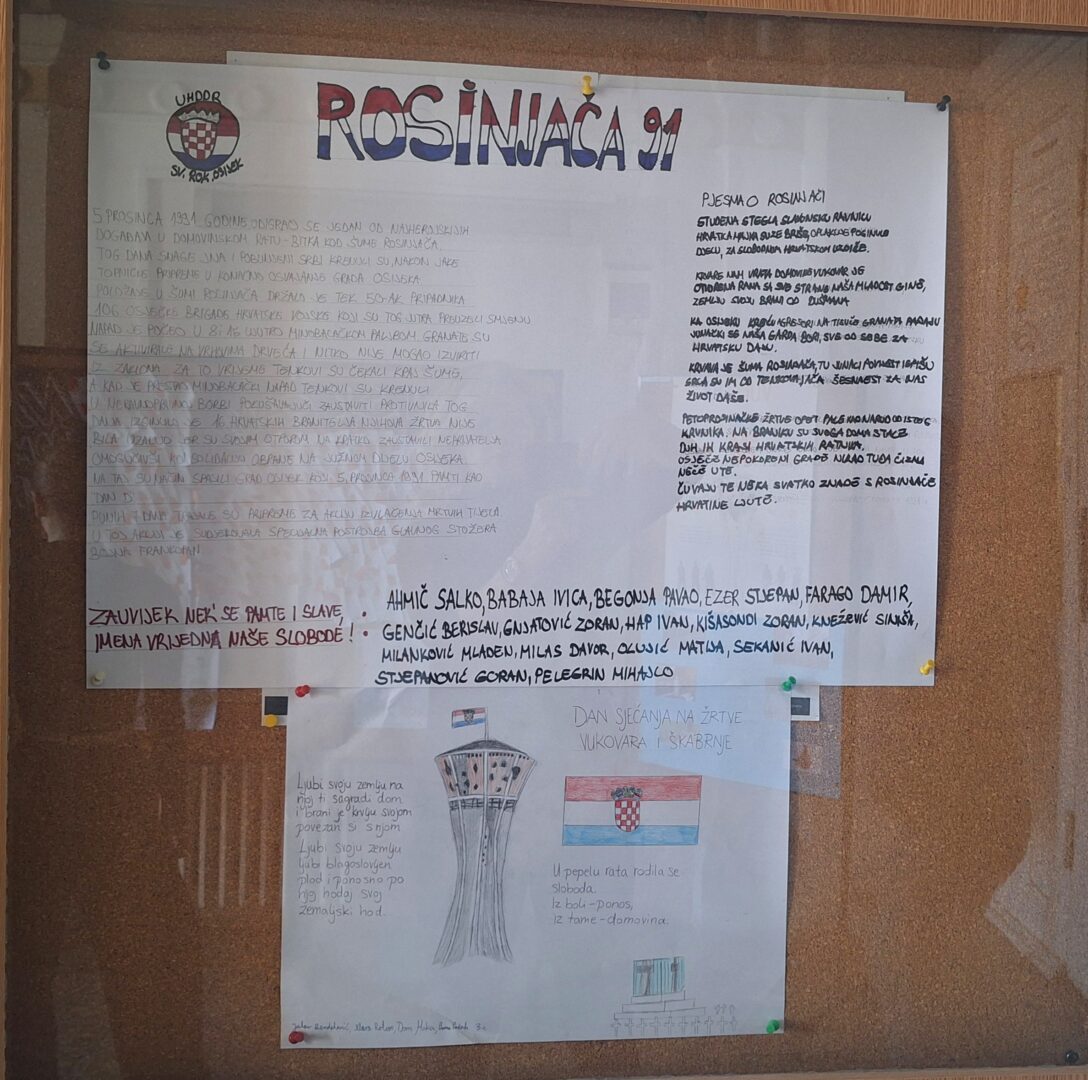 UHDDR
SV. ROK, OSIJEK
ROSINJAČA 91
5 PROSINCA 1991. GODINE ODIGRAO SE JEDAN OD NAJHEROJSKIJIH
DOGAĐAJA U DOMOVINSKOM RATU - BITKA KOD ŠUME ROSINJAČA.
TOG DANA SNAGE JNA I POBUNJENI SRBI KRENULI SU, NAKON JAKE
TOPNIČKE PRIPREME U KONAČNO OSVAJANJE GRADA OSIJEKA.
POLOŽAJE U ŠUMI ROSINJAČA DRŽALO JE TEK 50-AK PRIPADNIKA
106. OSJEČKE BRIGADE HRVATSKE VOJSKE KOJI SU TOG JUTRA PREUZELI SMJENU
NAPAD JE POČEO U 8:15 UJUTRO MINOBACAČKOM PALJBOM. GRANATE SU
SE AKTIVIRALE NA VRHOVIMA DRVEĆA I NITKO NIJE MOGAO IZVIRITI
IZ ZAKLONA. ZA TO VRIJEME TENKOVI SU ČEKALI KRAJ ŠUME,
A KAD JE PRESTAO MINOBACAČKI NAPAD TENKOVI SU KRENULI
U BORBI POKUŠAVAJUĆI ZAUSTAVITI PROTIVNIKA TOG
DANA POGINULO JE 16 HRVATSKIH BRANITELJA NJIHOVA ŽRTVA NIJE
BILA UZALUD JER SU SVOJIM OTPOROM NA KRATKO ZAUSTAVILI NEPRIJATELJA
OMOGUĆIVŠI KONSOLIDACIJU OBRANE NA JUŽNOM DIJELU OSIJEKA.
NA TAJ SU NAČIN SPASILI GRAD OSIJEK KOJI 5. PROSINCA 1991. PAMTI KAO
DAN D
PUNIH DANA TRAJALE SU PRIPREME ZA AKCIJU IZVLAČENJA MRTVIH TIJELA
U TOJ AKCIJI JE SUDJELOVALA SPECIJALNA POSTROJBA GLAVNOG STOŽERA
BOJNA FRANKOPAN
PJESMA O ROSINJAČI
STUDENA STEGLA SLAVONSKU RAVNICU
HRVATKA MAJKA SUZE BRIŠE, OPLAKUJE POGINULO
DIJELU, ZA SLOBODNOM HRVATSKOM UZDIŠE.
KRVARE NAM VRATA DOMOVINE VUKOVAR JE
OTVORENA RANA SA SVE STRANE NAŠA MLADOST GINE,
ZEMLJU SVOJU BRANI OD DUŠMANA
KA OSIJEKU KREĆU AGRESORI NA TISUĆE GRANATA PADAJU
JUNAČKI SE NAŠA GARDA BORI, SVE OD SEBE ZA
HRVATSKU DAJU.
KRVAVA JE ŠUMA ROSINJAČA, TU JUNACI POVIJEST ISPIŠU
SRCA SU IM OD TENKOVA JAČA ŠESNAEST ZA NAS
ŽIVOT DAŠE.
PETOPROSINAČKE ŽRTVE OPET PALE KAO NAROD OD ISTOG
KRVNIKA. NA BRANIKU SU SVOGA DOMA STALE
DUH IH KRASI HRVATSKIH RATNIKA.
OSJEČE NEPOKORENI GRADE NIKAD TUĐA ČIZMA
NEĆE UTE.
ČUVAJU TE NEKA SVATKO ZNADE S ROSINJAČE
HRVATINE LJUTE.
ZAUVIJEK NEK' SE PAMTE I SLAVE,
IMENA VRIJEDNA NAŠE SLOBODE! :
AHMIČ SALKO, BABAJA IVICA, BEGONJA PAVAO, EZER STJEPAN, FARAGO DAMIR,
GENČIĆ BERISLAV, GNJATOVIĆ ZORAN, HAP IVAN, KIŠASONDI ZORAN, KNEŽEVIĆ SINIŠA,
MILANKOVIĆ MLADEN, MILAS DAVOR, OLUJIĆ MATIJA, SEKANIĆ IVAN,
STJEPANOVIĆ GORAN, PELEGRIN MIHAJLO
DAN SJEĆANJA NA ŽRTVE
VUKOVARA I ŠKABRNJE
Ljubi svoju zemlju na
njoj ti sagradi dom
i brani je krvlju svojom
povezan si s njom
Ljubi svoju zemlju
ljubi blagoslovljen
plod i ponosno po
njoj hodaj svoj
zemaljski hod.
U pepelu rata rodila se
sloboda.
Iz boli - ponos,
iz tame - domovina.
3.c